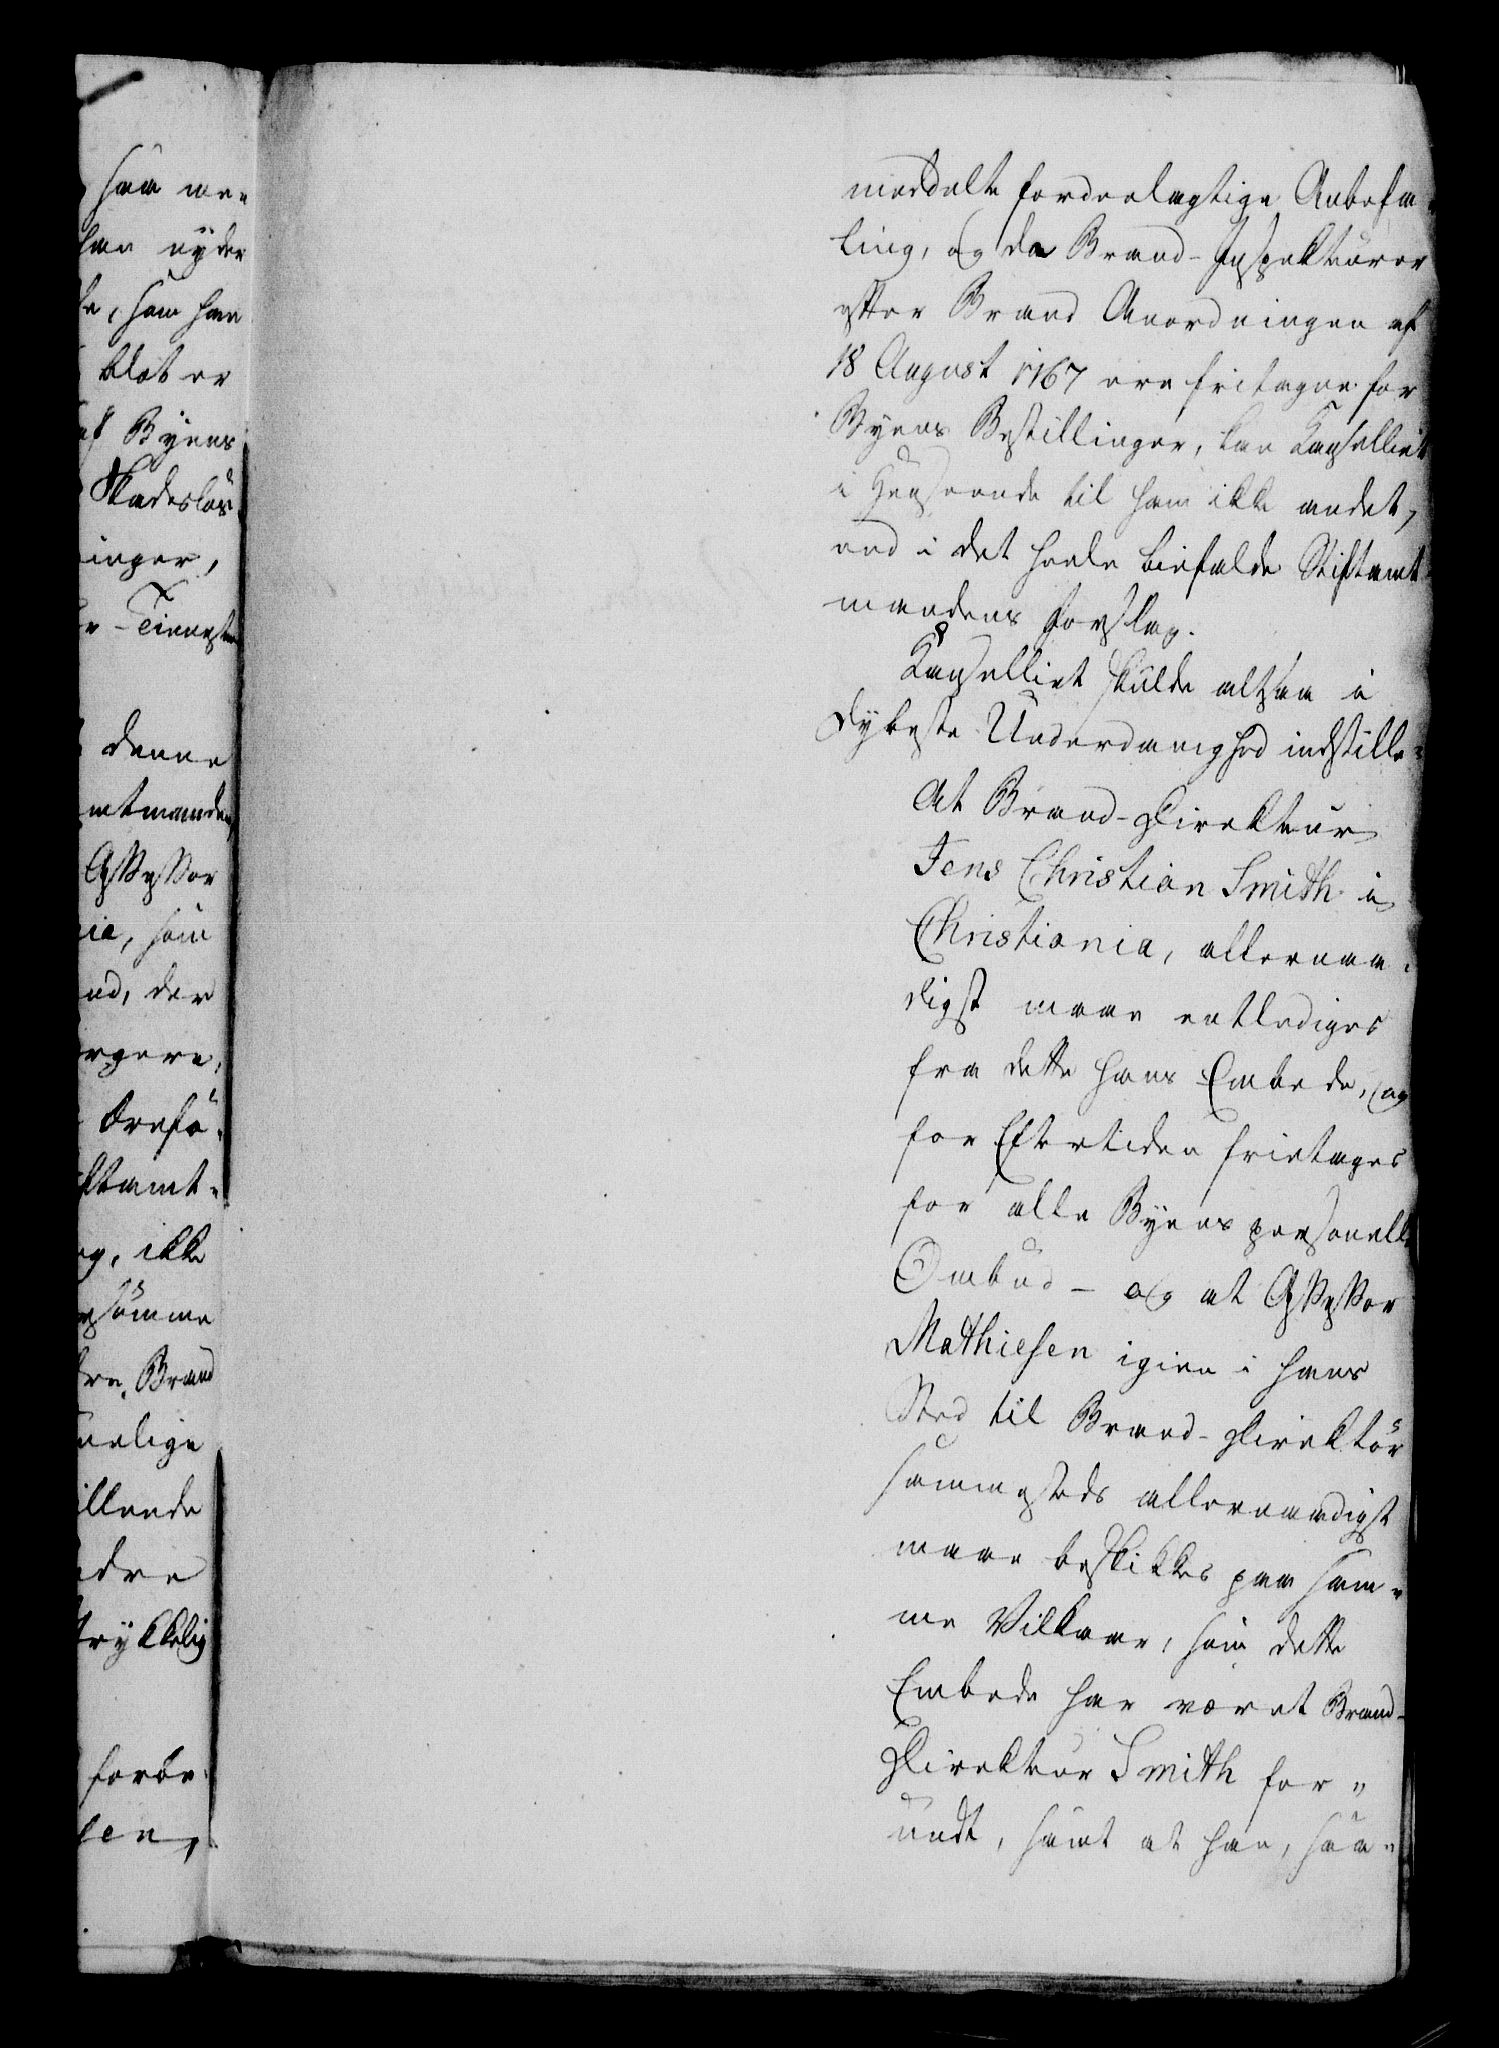 saa me=
han nyder
, som han
blot er
af Byens
Skadeslös
inger,
Tieneste
denne
mtmanden
Assessor
ie, som
nd, der
rgere,
Brefø=
ftamt=
g, ikke
rsømme
re, Brand
nelige
illende
dre
trykkelig
forbe=
sen,
meddelte fordeelagtige Anbefa=
ling, og da Brand-Inspekteurer
efter Brand Anordningen af
18 August 1767 ere fritagne for
Byens Bestillinger, kan Kancelliet
i Henseende til ham ikke andet,
end i det heele biefalde Stiftamt=
mandens Forslag.
Kancelliet skulde altsaa i
dybeste Underdanighed indstille=
At Brand-Direkteur
Jens Christian Smith i
Christiania, allernaa=
digst maae entlediges
fra dette hans Embede, og
for Eftertiden frietages
for alle Byens personelle
Ombud – og at Assessor
Mathiesen igien i hans
Sted til Brand-Direktør
sammesteds allernaadigst
maae beskikkes paa sam=
me Vilkaar, som dette
Embede har været Brand-
Direkteur Smith for=
undt, samt at han, saa=